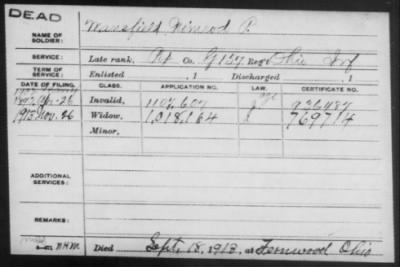 DEAD
NAME OF SOLDIER: Mansfield Nimrod P.
SERVICE: Late rank, Pvt Co. G 157 Reg't Ohio Inf
TERM OF SERVICE: Enlisted , 1 Discharged , 1
DATE OF FILING. CLASS. APPLICATION NO. LAW. CERTIFICATE NO.
Invalid, 1107,607 926487
1913 Nov. 26 Widow, 1,018,164 769714
Minor,
ADDITIONAL SERVICES:
REMARKS:
Died Sept. 18, 1913, at Fernwood Ohio